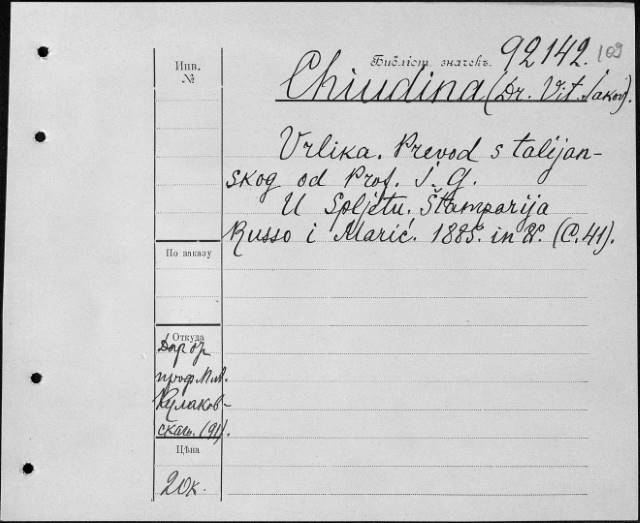 Инв.
№
Библіот. значекъ. 92142. 109
Chiudina (Dr. Vit. Jakov).
Vrlika. Prevod s talijan-
skog od Prof. I. G.
U Spljetu. Štamparija
Russo i Marić. 1885. in 8°. (C. 41).
По заказу
Откуда
Дар от
проф. Ил.
Кулаков-
скаго. (91).
Цѣна
20к.